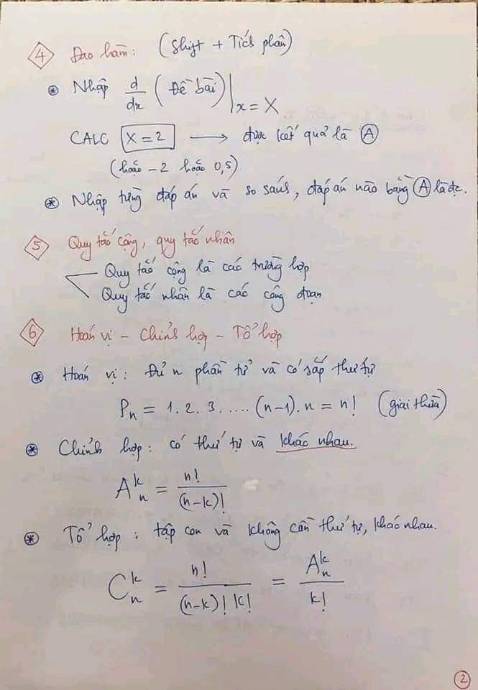 4 Đạo hàm: (Shift + Tích phân)
* Nhập d/dx (Đề bài)|x=X
CALC X=2 → được kết quả là A
(hoặc -2 hoặc 0,5)
* Nhập từng đáp án và so sánh, đáp án nào bằng A là đc.
5 Quy tắc cộng, quy tắc nhân
Quy tắc cộng là các trường hợp
Quy tắc nhân là các công đoạn
6 Hoán vị - Chỉnh hợp - Tổ hợp
* Hoán vị: Đủ n phần tử và có sắp thứ tự
Pn = 1.2.3.....(n-1).n = n! (giai thừa)
* Chỉnh hợp: có thứ tự và khác nhau.
A_n^k = n!/(n-k)!
* Tổ hợp: tập con và không cần thứ tự, khác nhau.
C_n^k = n!/((n-k)!k!) = A_n^k/k!
2